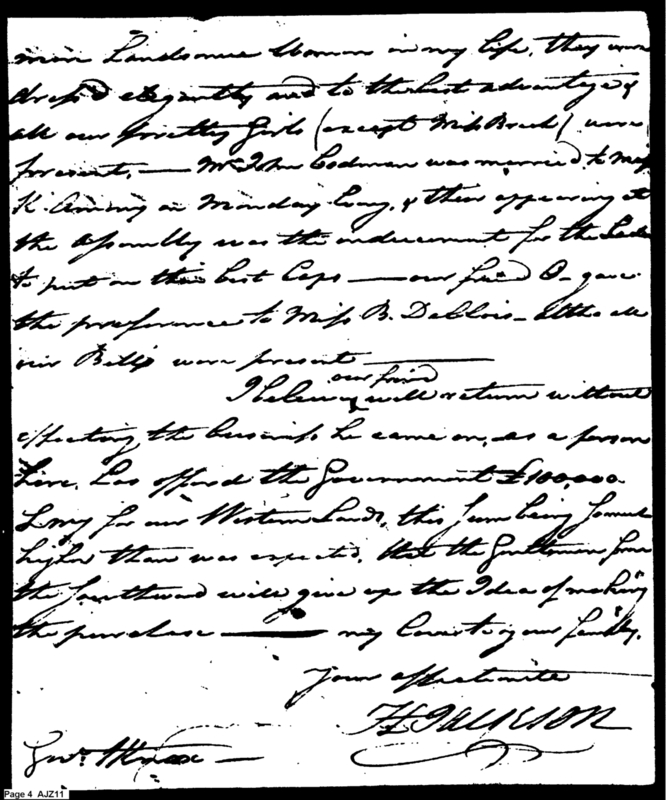 more handsome Woman in my life, they were
dress'd elegantly and to the best advantage &
all our pretty Girls (except Miss Breck) were
present. — Mr John Codman was married to Miss
K. Amory on Monday Eveng. & their appearing at
the Assembly was the inducement for the Ladies
to put on their best Caps — our friend O- gave
the preference to Miss B. Deblois - altho all
our Bells were present —
I believe our friend will return without
effecting the business he came on, as a person
here, has offered the Government £100,000.
L My for our Western Lands, this sum being so much
higher than was expected, that the Gentlemen from
the Southward will give up the Idea of making
the purchase — my Love to your family.
Your affectionate
H JACKSON
Genl. Knox —
Page 4 AJZ11